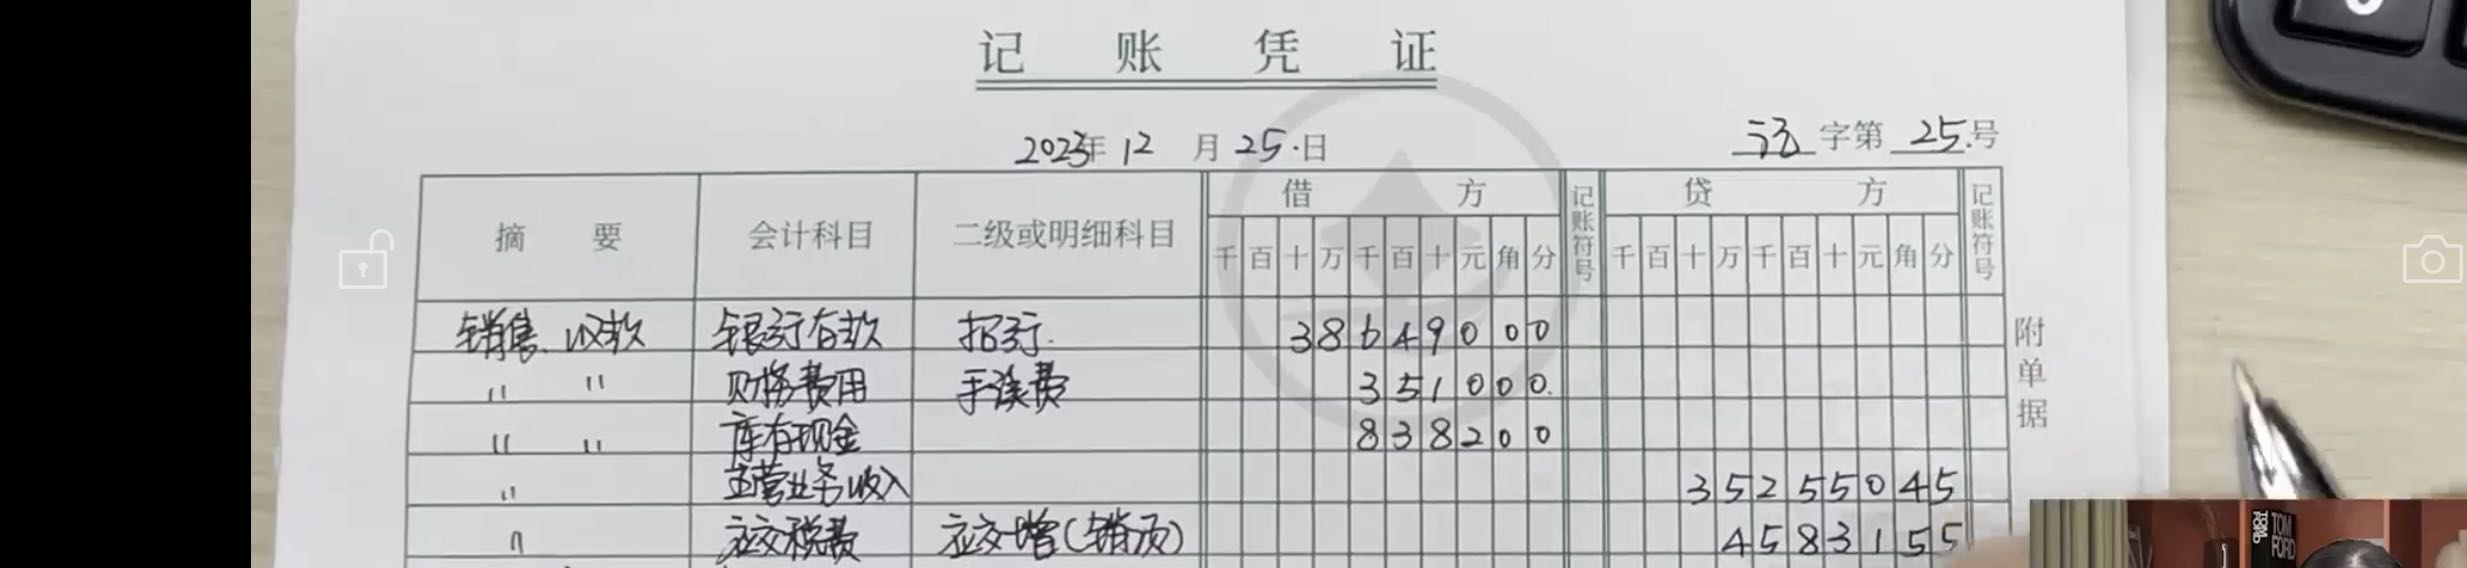 记 账 凭 证
2023年 12 月 25.日 记 字第 25.号
摘 要 会计科目 二级或明细科目 借 方 记账符号 贷 方 记账符号
千 百 十 万 千 百 十 元 角 分 千 百 十 万 千 百 十 元 角 分
销售、收款 银行存款 招行. 3 8 6 4 9 0 0 0
〃 〃 财务费用 手续费 3 5 1 0 0 0.
〃 〃 库存现金 8 3 8 2 0 0
〃 主营业务收入 3 5 2 5 5 0 4 5
〃 应交税费 应交增(销项) 4 5 8 3 1 5 5
附单据
TOM FORD
TOM FORD